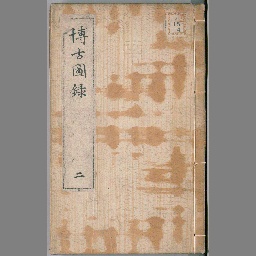 博古圖録
二